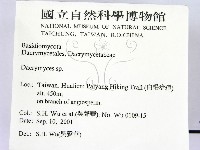 國立自然科學博物館
NATIONAL MUSEUM OF NATURAL SCIENCE
TAICHUNG, TAIWAN, R.O.CHINA
Basidiomycota
Dacrymycetales, Dacrymycetaceae
Dacrymyces sp.
Loc.: Taiwan, Hualien: Paiyang Hiking Trail (白楊步道)
alt. 450m,
on branch of angiosperm.
Col.: S.H. Wu et al. No. Wu 0109-15
Date: Sep. 10, 2001
Det.: S.H. Wu